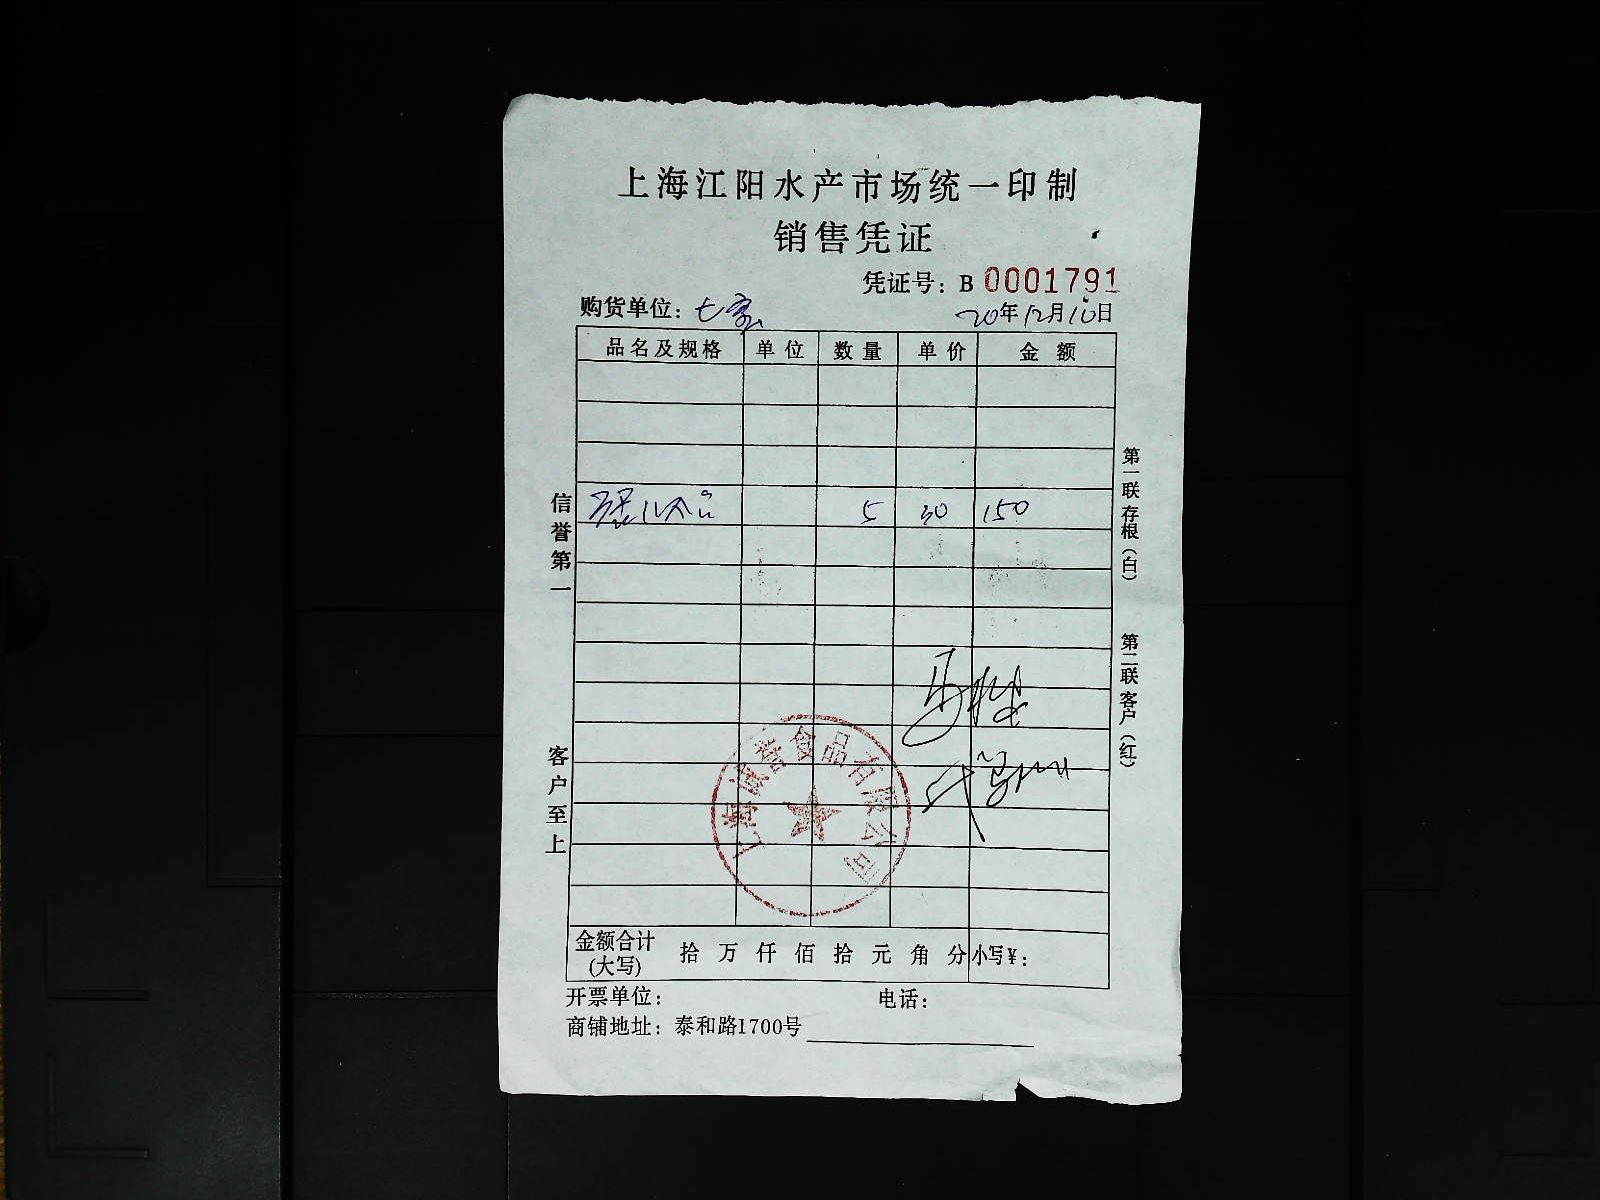 上海江阳水产市场统一印制
销售凭证
凭证号：B 0001791
购货单位：七宝
20年12月10日
品名及规格 单位 数量 单价 金额
5 30 150
信誉第一
客户至上
第一联 存根（白）
第二联 客户（红）
上海诚誉食品有限公司
金额合计(大写) 拾 万 仟 佰 拾 元 角 分 小写¥：
开票单位： 电话：
商铺地址：泰和路1700号